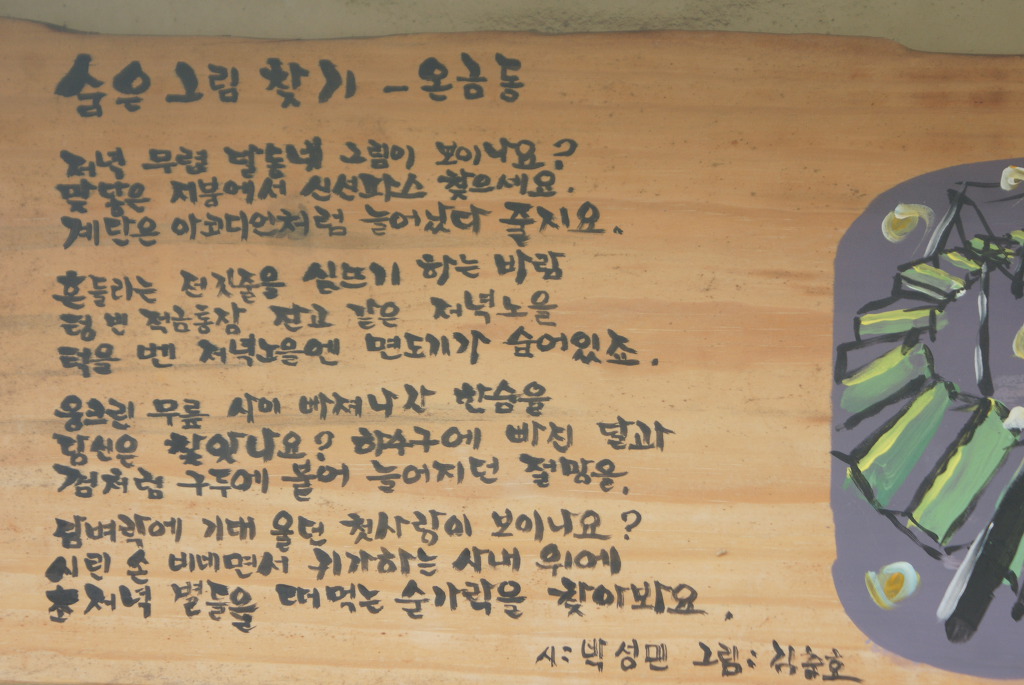 숨은 그림 찾기 - 온금동
저녁 무렵 달동네 그림이 보이나요?
맞닿은 지붕에서 신선파스 찾으세요.
계단은 아코디언처럼 늘어났다 줄지요.
흔들리는 전깃줄을 실뜨기 하는 바람
텅 빈 적금통장 잔고 같은 저녁노을
턱을 벤 저녁노을엔 면도기가 숨어있죠.
웅크린 무릎 사이 빠져나간 한숨을
당신은 찾았나요? 하수구에 빠진 달과
껌처럼 구두에 붙어 늘어지던 절망을.
담벼락에 기대 울던 첫사랑이 보이나요?
시린 손 비비면서 귀가하는 사내 위에
초저녁 별들을 떠먹는 숟가락을 찾아봐요.
시: 박성민 그림: